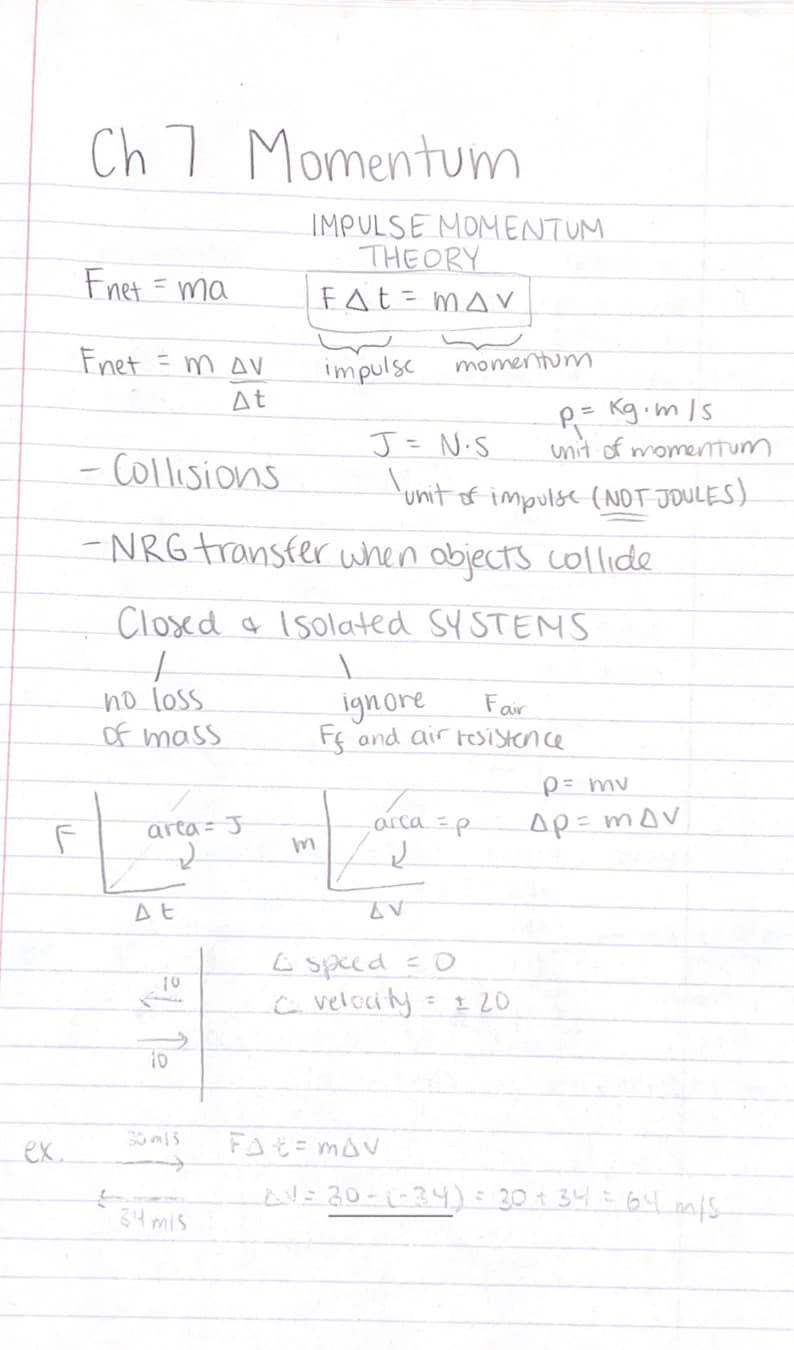 Ch 7 Momentum
IMPULSE MOMENTUM
THEORY
Fnet = ma
FΔt = mΔv
impulse momentum
Fnet = m Δv
Δt
p = Kg·m/s
unit of momentum
J = N·S
unit of impulse (NOT JOULES)
- Collisions
- NRG transfer when objects collide
Closed & Isolated SYSTEMS
no loss
of mass
ignore Fair
Ff and air resistence
p = mv
Δp = mΔv
F area = J
Δt
m area = p
Δv
10
10
Δ speed = 0
Δ velocity = ± 20
ex. 30 m/s FΔt = mΔv
34 m/s Δv = 30 - (-34) = 30 + 34 = 64 m/s